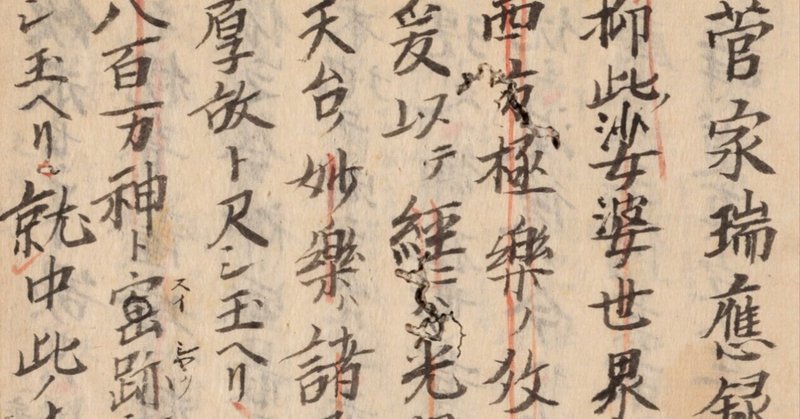 菅家瑞應録
抑此娑婆世界
西方極樂ノ教
爰以テ經ニハ光
天台ノ妙樂ハ諸
厚故ト尺シ玉ヘリ
八百万神ト寓跡 スイシヤク
シ玉ヘリ就中此ノ